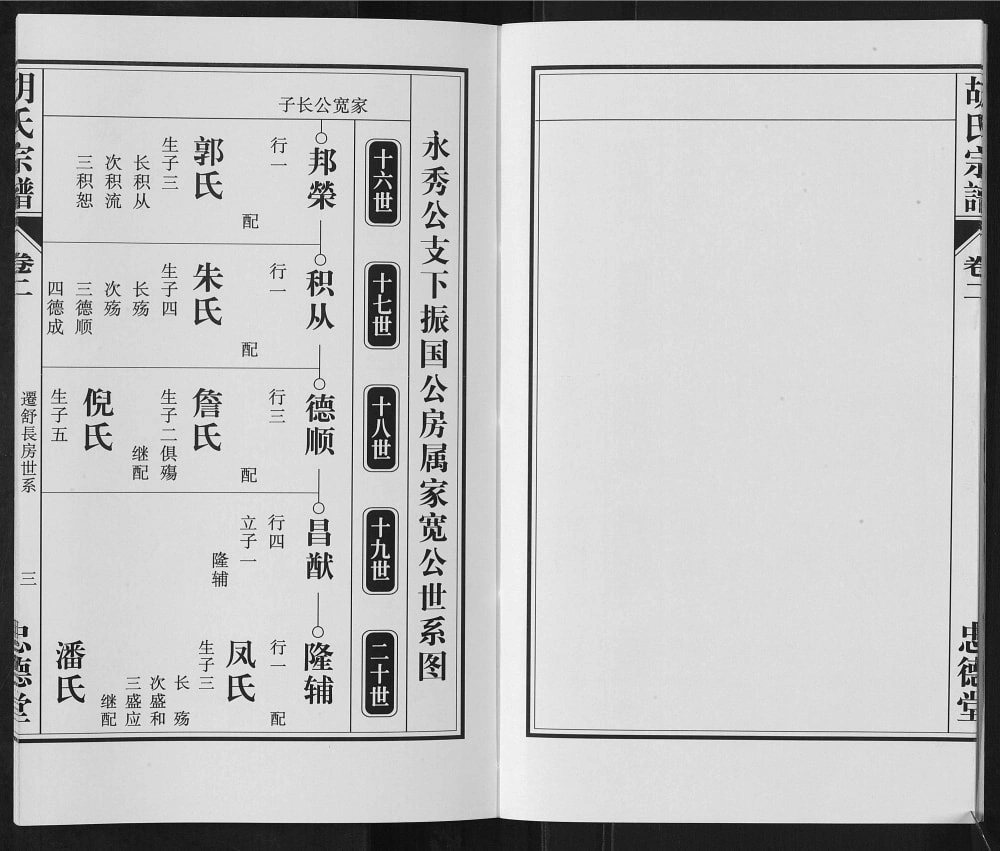 胡氏宗譜
卷二
忠德堂
永秀公支下振国公房属家宽公世系图
十六世
十七世
十八世
十九世
二十世
家宽公长子
邦榮
行一
配
郭氏
生子三
长积从
次积流
三积恕
积从
行一
配
朱氏
生子四
长殇
次殇
三德顺
四德成
德顺
行三
配
詹氏
生子二俱殤
继配
倪氏
生子五
昌猷
行四
立子一
隆辅
隆辅
行一
配
凤氏
生子三
长殇
次盛和
三盛应
继配
潘氏
胡氏宗譜
卷二
遷舒長房世系
三
忠德堂